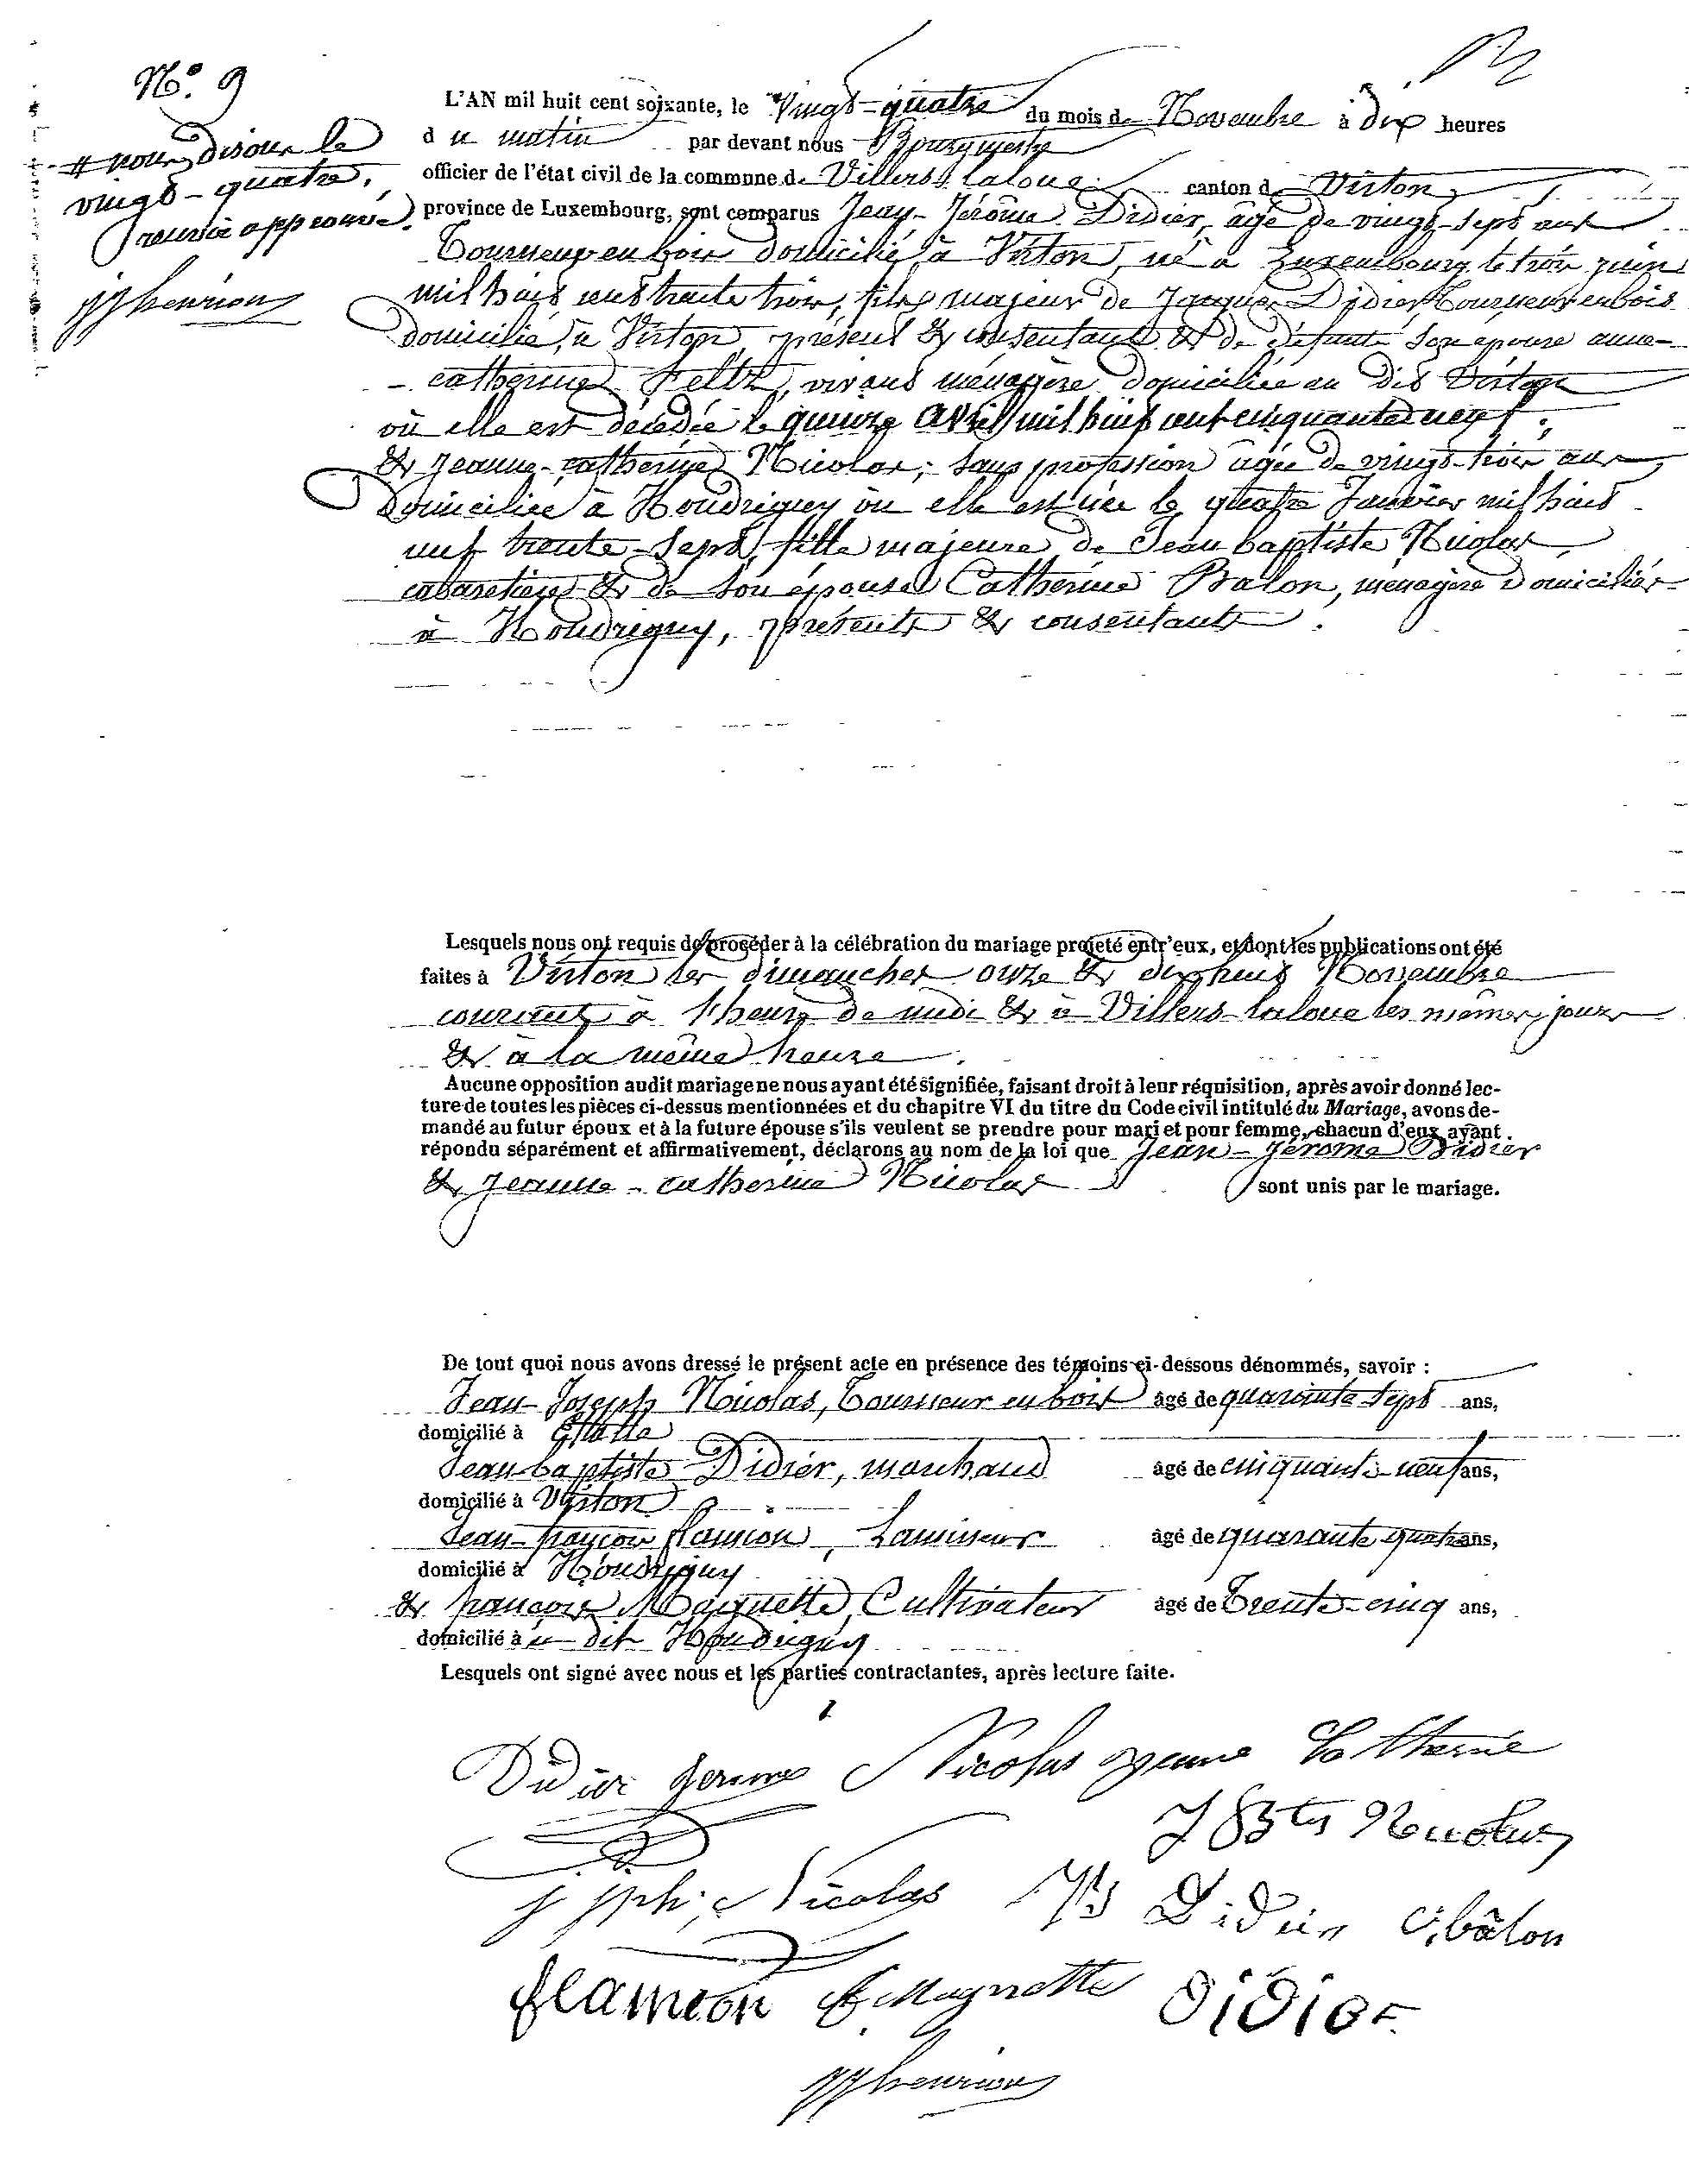 N° 9
# nous disons le
vingt-quatre,
renvoi approuvé.
JJ henrion
L'AN mil huit cent soixante, le Vingt-quatre du mois de Novembre à dix heures
du matin par devant nous Bourgmestre
officier de l'état civil de la commune de Villers la loue, canton de Virton,
province de Luxembourg, sont comparus Jean-Jérôme Didier, âgé de vingt-sept ans
Tourneur en bois domicilié à Virton, né à Luxembourg le trois juin
mil huit cent trente trois, fils majeur de Jacques Didier, Tourneur en bois
domicilié à Virton, présent & consentant & de défunte son épouse anne-
-catherine Feltz, vivant ménagère domiciliée au dit Virton
où elle est décédée le quinze avril mil huit cent cinquante neuf;
& Jeanne-catherine Nicolas, sans profession âgée de vingt-trois ans
Domiciliée à Houdrigny où elle est née le quatre Janvier mil huit
cent trente-sept, fille majeure de Jean baptiste Nicolas,
cabaretier & de son épouse Catherine Balon, ménagère domiciliés
à Houdrigny, présents & consentants.
Lesquels nous ont requis de procéder à la célébration du mariage projeté entr'eux, et dont les publications ont été
faites à Virton les dimanches onze & dix huit Novembre
courant à 1 heure de midi & à Villers-laloue les mêmes jours
& à la même heure.
Aucune opposition audit mariage ne nous ayant été signifiée, faisant droit à leur réquisition, après avoir donné lec-
ture de toutes les pièces ci-dessus mentionnées et du chapitre VI du titre du Code civil intitulé du Mariage, avons de-
mandé au futur époux et à la future épouse s'ils veulent se prendre pour mari et pour femme, chacun d'eux ayant
répondu séparément et affirmativement, déclarons au nom de la loi que Jean-Jérome Didier
& Jeanne-catherine Nicolas sont unis par le mariage.
De tout quoi nous avons dressé le présent acte en présence des témoins ci-dessous dénommés, savoir :
Jean-Joseph Nicolas, Tourneur en bois âgé de quarante sept ans,
domicilié à Ethe
Jean-baptiste Didier, marchand âgé de cinquante-neuf ans,
domicilié à Virton
Jean-françois flamion, Tanneur âgé de quarante quatre ans,
domicilié à Houdrigny
& françois Magnette, Cultivateur âgé de Trente-cinq ans,
domicilié à u dit Houdrigny
Lesquels ont signé avec nous et les parties contractantes, après lecture faite.
Didier Jerome Nicolas Jeanne Catherine
J Bte Nicolas
j jph; Nicolas JB Didier C. bâlon
flamion F Magnette Didier
JJ henrion